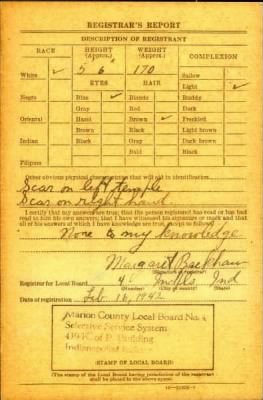 REGISTRAR'S REPORT
DESCRIPTION OF REGISTRANT
RACE
HEIGHT (Approx.)
WEIGHT (Approx.)
COMPLEXION
White ✓
5 6"
170
Sallow
EYES
HAIR
Light ✓
Negro
Blue ✓
Blonde
Ruddy
Gray
Red
Dark
Oriental
Hazel
Brown ✓
Freckled
Brown
Black
Light brown
Indian
Black
Gray
Dark brown
Bald
Black
Filipino
Other obvious physical characteristics that will aid in identification
Scar on left temple
Scar on right hand.
I certify that my answers are true; that the person registered has read or has had
read to him his own answers; that I have witnessed his signature or mark and that
all of his answers of which I have knowledge are true, except as follows:
None to my knowledge
Margaret
Registrar for Local Board 4 Indpls Ind
(Number) (City or county) (State)
Date of registration Feb. 16, 1942
Marion County Local Board No. 4
Selective Service System
K. of P. Building
Indianapolis
(STAMP OF LOCAL BOARD)
(The stamp of the Local Board having jurisdiction of the registrant
shall be placed in the above space)